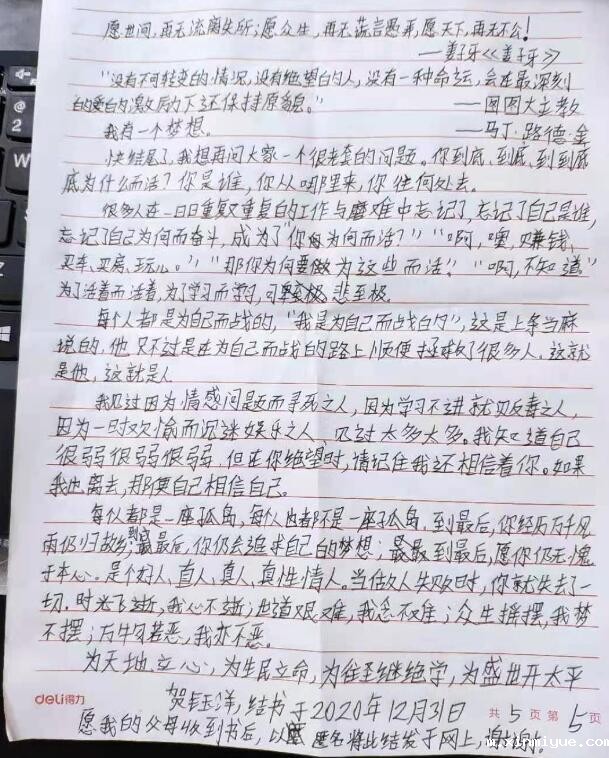 愿世间,再无流离失所;愿众生,再无谎言愚弄,愿天下,再无不公!
——姜子牙《姜子牙》
“没有不可转变的情况,没有绝望的人,没有一种命运,会在最深刻
的爱的激励下还保持原貌。” ——图图大主教
我有一个梦想。 ——马丁·路德·金
快结尾了,我想再问大家一个很老套的问题。你到底、到底、到到底
底为什么而活?你是谁,你从哪里来,你往何处去。
很多人在一日日重复又重复的工作与磨难中忘记了,忘记了自己是谁,
忘记了自己为何而奋斗,成为了“你为何而活?”“啊,噢,赚钱、
买车、买房、玩儿。”“那你为何要做为这些而活?”“啊,不知道”
为了活着而活着,为了学习而学习,可笑至极,悲至极.
每个人都是为自己而战的,“我是为自己而战的”,这是上条当麻
说的,他只不过是在为自己而战的路上顺便拯救了很多人,这就
是他,这就是人
我见过因为情感问题而寻死之人,因为学习不进就见反毒之人,
因为一时欢愉而沉迷娱乐之人,见过太多太多。我知道自己
很弱很弱很弱,但在你绝望时,请记住我还相信着你。如果
我也离去,那便自己相信自己。
每个人都是一座孤岛,每个人也都不是一座孤岛,到最后,你经历万千风
雨仍归故乡;到最最后,你仍会追求自己的梦想;最最到最后,愿你仍无愧
于本心。是个好人,直人,真人,真性情人。当估欠人失败时,你就失去了一
切.时光飞逝,我心不逝;世道艰难,我念不难;众生摇摆,我梦
不摆;万物若恶,我亦不恶。
为天地立心,为生民立命,为往圣继绝学,为盛世开太平
贺钰洋,结书于2020年12月31日
deli得力
共5页第5页
愿我的父母收到书后,以 匿名将此结发于网上,谢谢。